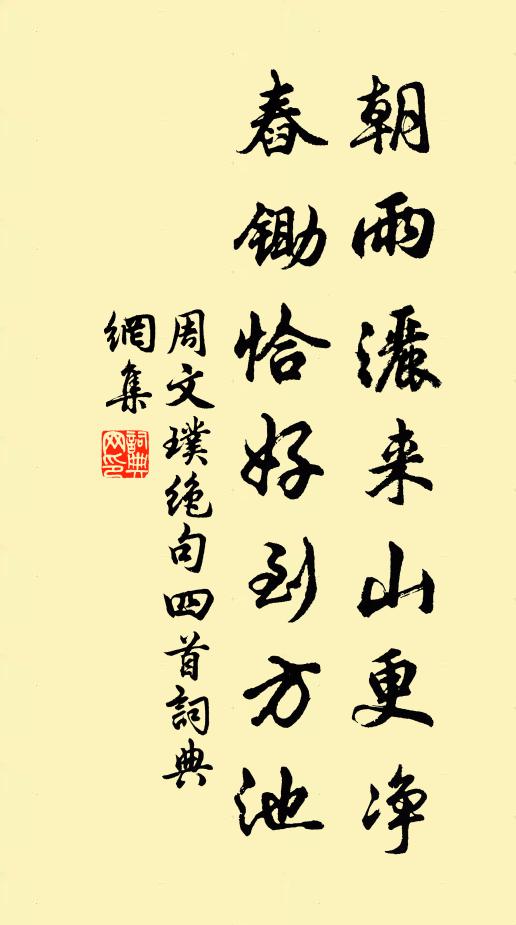 朝雨灑来山更净
舂鋤恰好到方池
周文璞绝句四首詞典
網集
詞典
网印